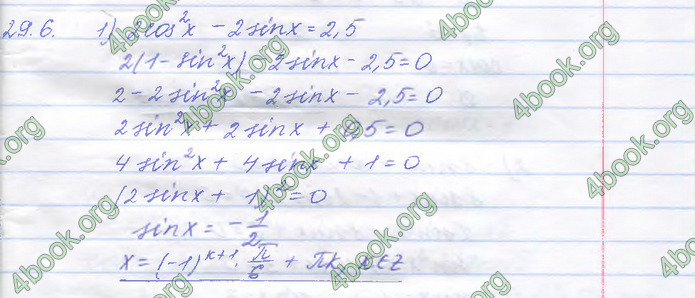 29.6. 1) 2cos²x - 2sinx = 2,5
2(1 - sin²x) - 2sinx - 2,5 = 0
2 - 2sin²x - 2sinx - 2,5 = 0
2sin²x + 2sinx + 0,5 = 0
4sin²x + 4sinx + 1 = 0
(2sinx + 1)² = 0
sinx = -1/2
x = (-1)^(k+1) · π/6 + πk, k∈Z
4book.org
4book.org
4book.org
4book.org
4book.org
4book.org
4book.org
4book.org